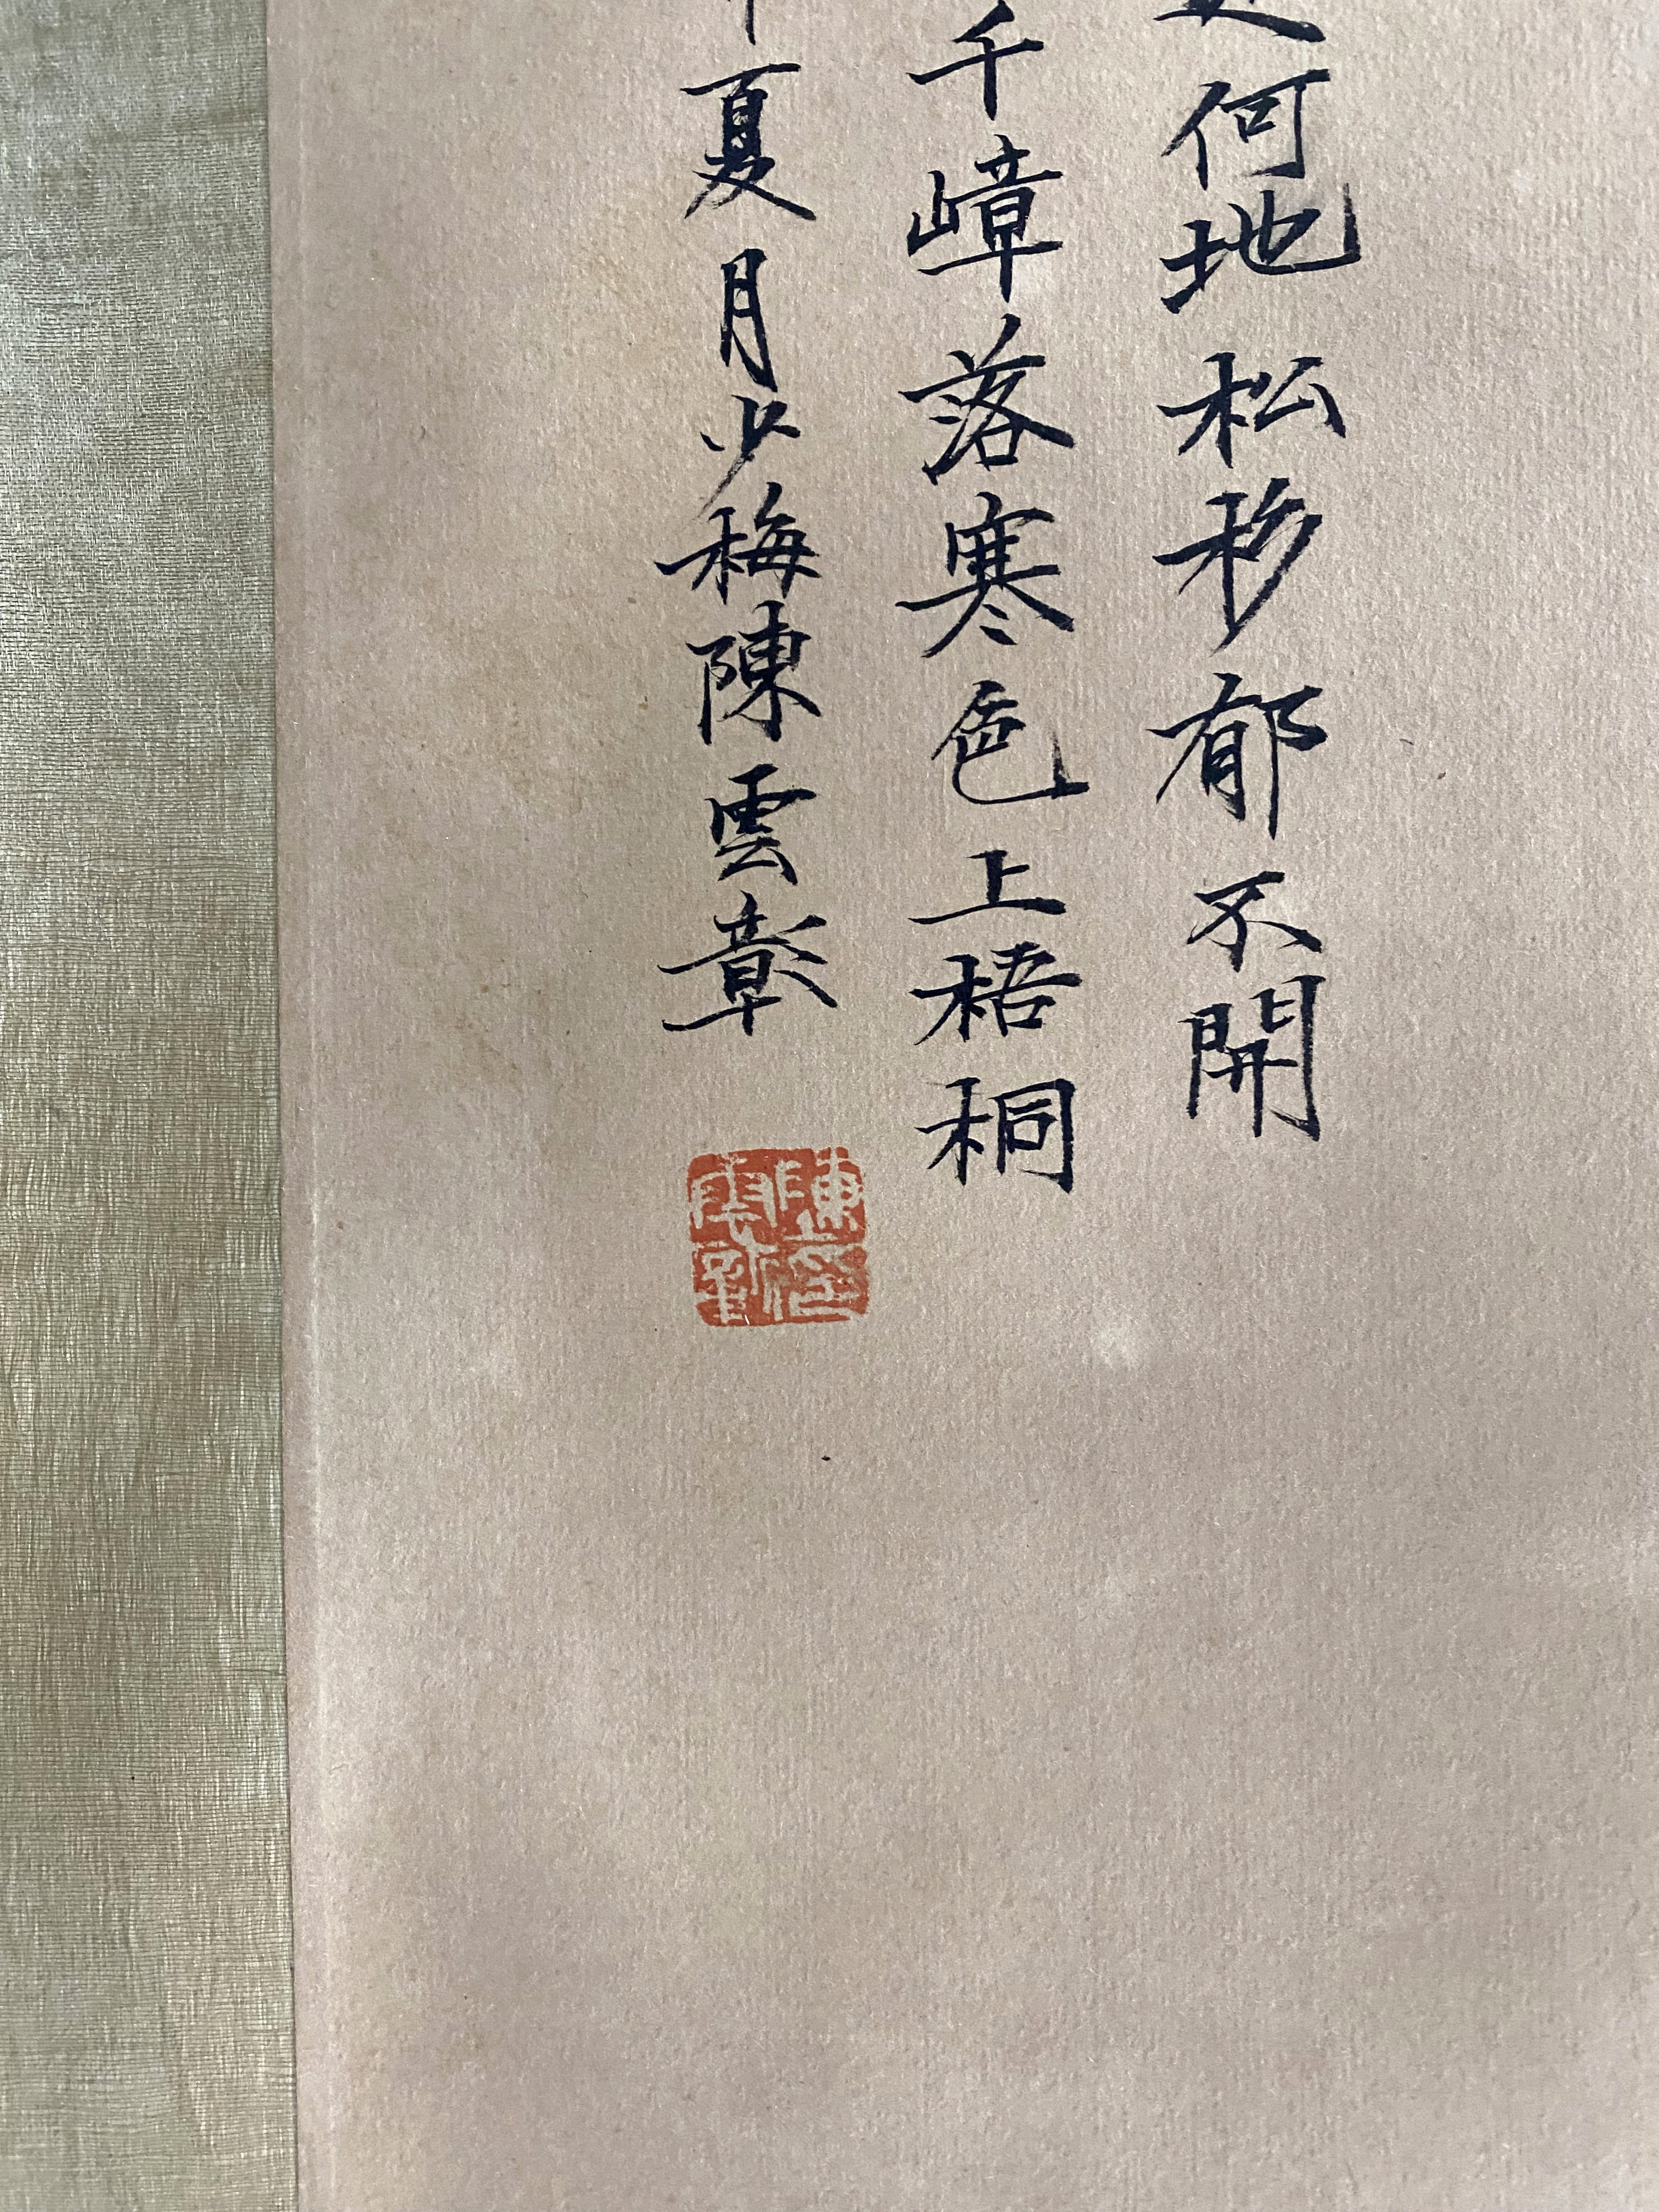 何地松杉郁不開
千嶂落寒色上梧桐
夏月少梅陳雲彰
陳雲彰印